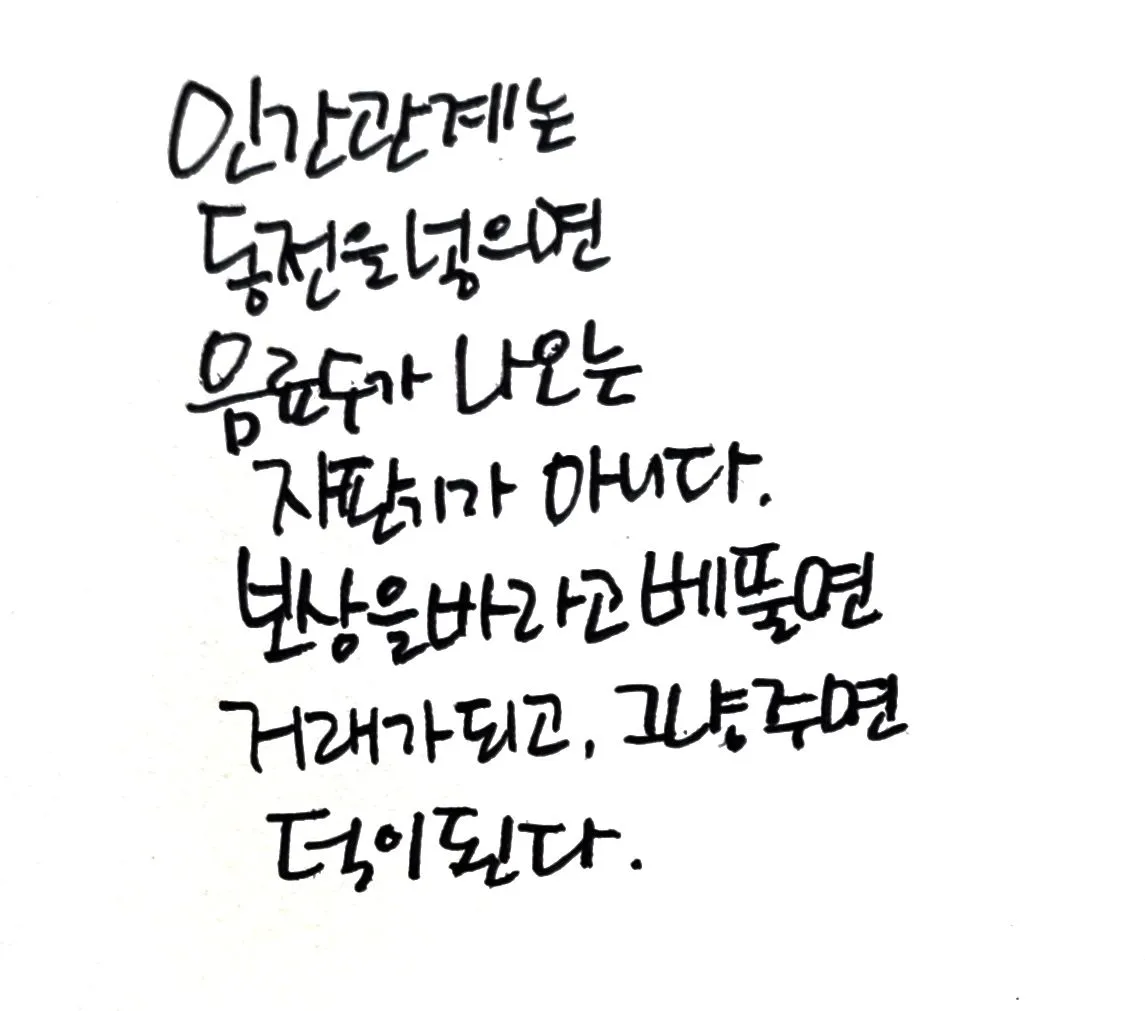 인간관계는
동전을 넣으면
음료수가 나오는
자판기가 아니다.
보상을 바라고 베풀면
거래가 되고, 그냥 주면
덕이 된다.